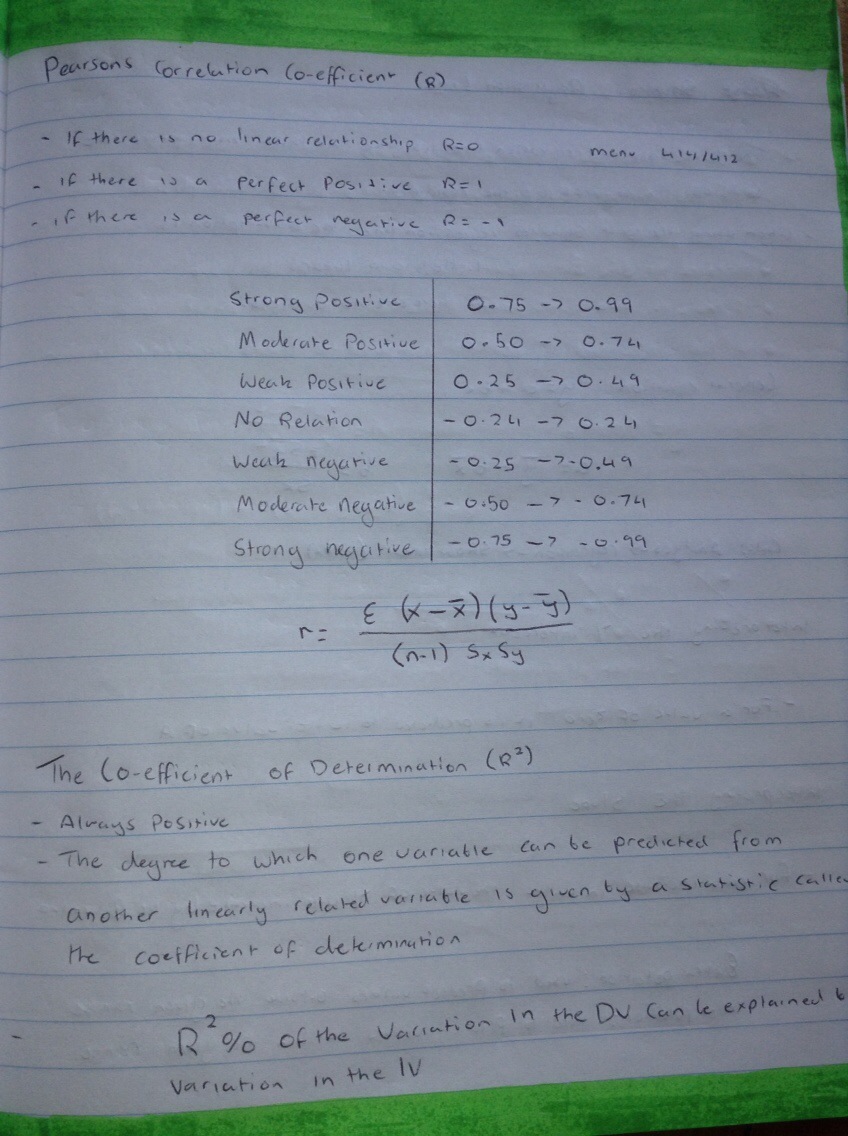 Pearsons Correlation Co-efficient (R)
- If there is no linear relationship R=0 menu 414/412
- if there is a perfect Positive R=1
- if there is a perfect negative R= -1
Strong Positive 0.75 -> 0.99
Moderate Positive 0.50 -> 0.74
Weak Positive 0.25 -> 0.49
No Relation -0.24 -> 0.24
Weak negative -0.25 -> -0.49
Moderate negative -0.50 -> -0.74
Strong negative -0.75 -> -0.99
r = Σ (x-x̄)(y-ȳ)
(n-1) Sx Sy
The Co-efficient of Determination (R²)
- Always Positive
- The degree to which one variable can be predicted from
another linearly related variable is given by a statistic calle
the coefficient of determination
- R²% of the variation in the DV can be explained b
variation in the IV